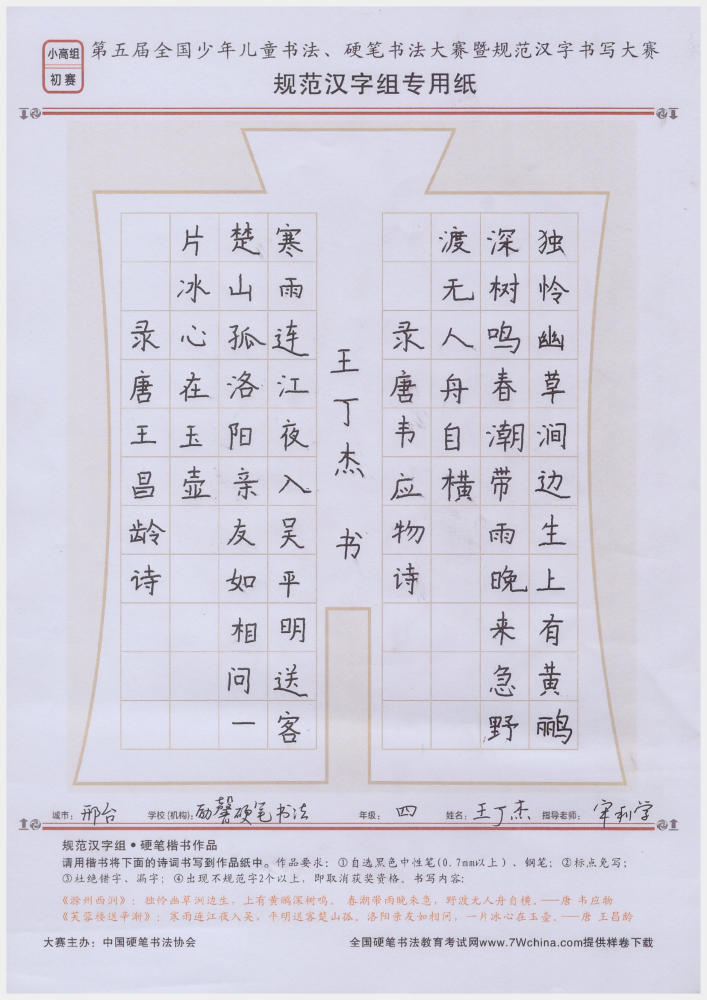 小高组
初赛
第五届全国少年儿童书法、硬笔书法大赛暨规范汉字书写大赛
规范汉字组专用纸
独怜幽草涧边生上有黄鹂
深树鸣春潮带雨晚来急野
渡无人舟自横
录唐韦应物诗
王丁杰 书
寒雨连江夜入吴平明送客
楚山孤洛阳亲友如相问一
片冰心在玉壶
录唐王昌龄诗
城市：邢台 学校(机构)：励馨硬笔书法 年级：四 姓名：王丁杰 指导老师：宋利字
规范汉字组•硬笔楷书作品
请用楷书将下面的诗词书写到作品纸中。作品要求：①自选黑色中性笔(0.7mm以上)、钢笔；②标点免写；
③杜绝错字、漏字；④出现不规范字2个以上，即取消获奖资格。书写内容：
《滁州西涧》：独怜幽草涧边生，上有黄鹂深树鸣。春潮带雨晚来急，野渡无人舟自横。——唐 韦应物
《芙蓉楼送辛渐》：寒雨连江夜入吴，平明送客楚山孤。洛阳亲友如相问，一片冰心在玉壶。——唐 王昌龄
大赛主办：中国硬笔书法协会 全国硬笔书法教育考试网www.7Wchina.com提供样卷下载